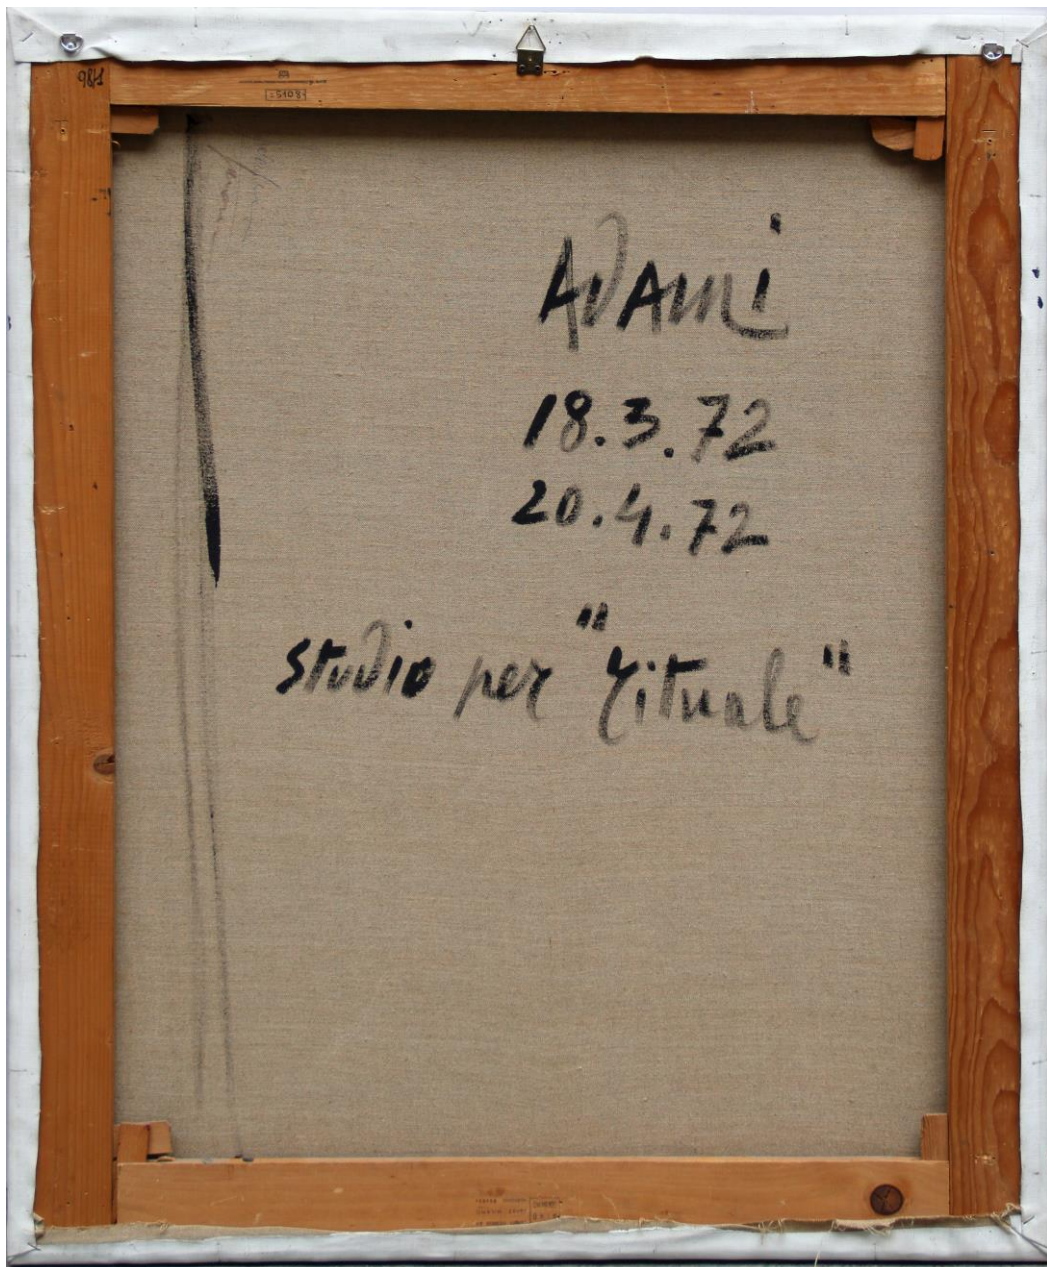 ADAMi
18.3.72
20.4.72
studio per "rituale"